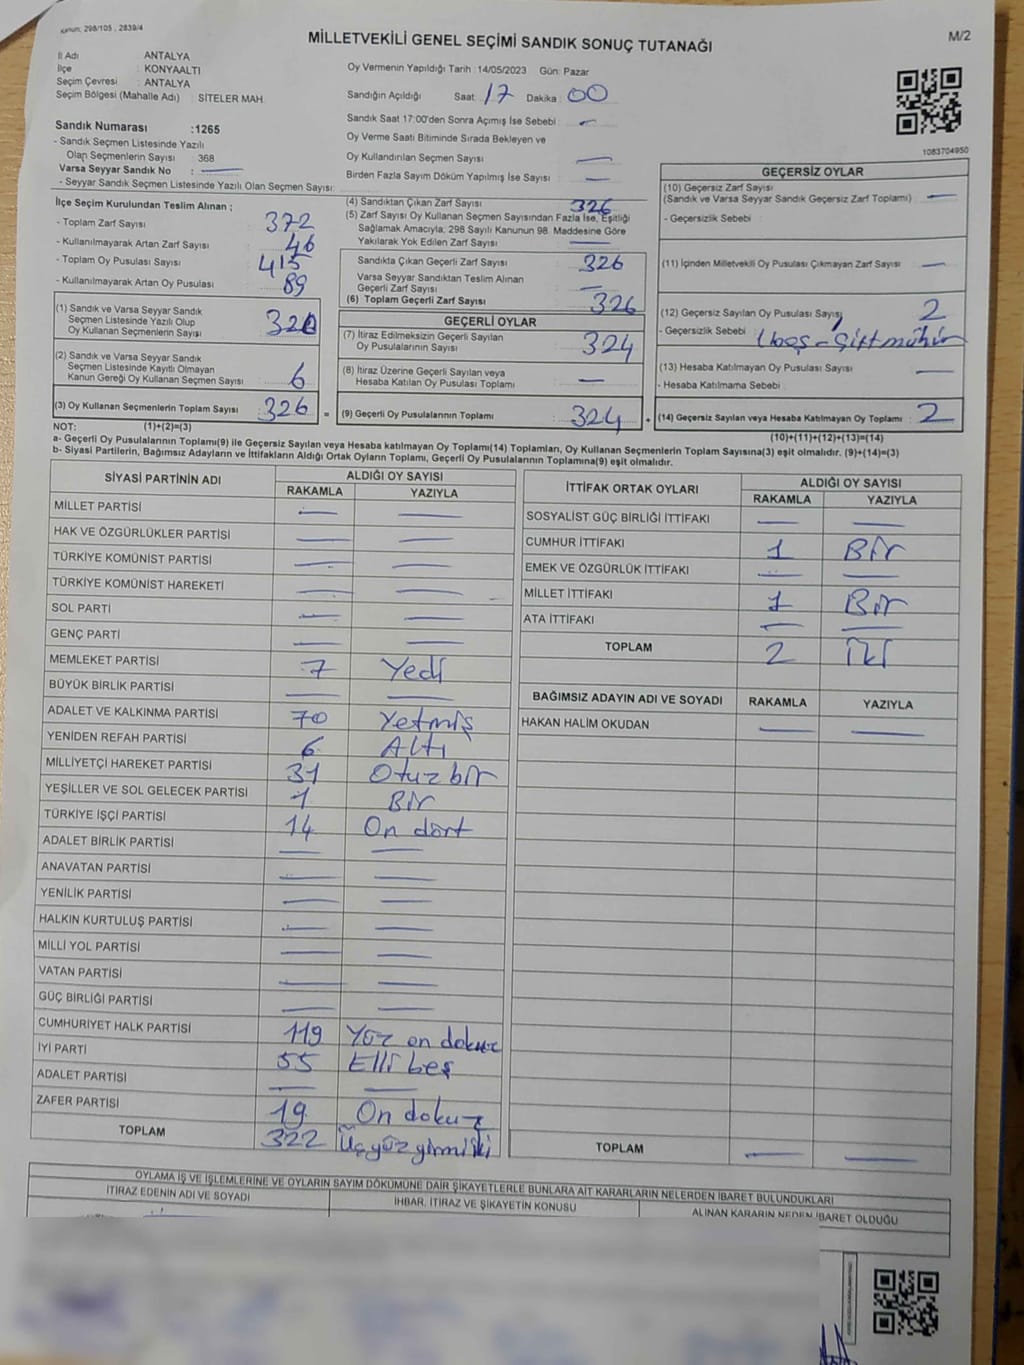 Kanun: 298/105 , 2839/4
MİLLETVEKİLİ GENEL SEÇİMİ SANDIK SONUÇ TUTANAĞI
M/2
İl Adı : ANTALYA
İlçe : KONYAALTI
Seçim Çevresi : ANTALYA
Seçim Bölgesi (Mahalle Adı) : SİTELER MAH.
Oy Vermenin Yapıldığı Tarih : 14/05/2023 Gün: Pazar
Sandığın Açıldığı Saat : 17 Dakika : 00
Sandık Saat 17:00'den Sonra Açımış İse Sebebi : —
Oy Verme Saati Bitiminde Sırada Bekleyen ve
Oy Kullandırılan Seçmen Sayısı : —
Birden Fazla Sayım Döküm Yapılmış İse Sayısı : —
1083704950
Sandık Numarası :1265
- Sandık Seçmen Listesinde Yazılı
Olan Seçmenlerin Sayısı : 368
Varsa Seyyar Sandık No : —
- Seyyar Sandık Seçmen Listesinde Yazılı Olan Seçmen Sayısı:
İlçe Seçim Kurulundan Teslim Alınan ;
- Toplam Zarf Sayısı : 372
- Kullanılmayarak Artan Zarf Sayısı : 46
- Toplam Oy Pusulası Sayısı : 415
- Kullanılmayarak Artan Oy Pusulası : 89
(1) Sandık ve Varsa Seyyar Sandık
Seçmen Listesinde Yazılı Olup
Oy Kullanan Seçmenlerin Sayısı : 320
(2) Sandık ve Varsa Seyyar Sandık
Seçmen Listesinde Kayıtlı Olmayan
Kanun Gereği Oy Kullanan Seçmen Sayısı : 6
(3) Oy Kullanan Seçmenlerin Toplam Sayısı : 326 =
(4) Sandıktan Çıkan Zarf Sayısı : 326
(5) Zarf Sayısı Oy Kullanan Seçmen Sayısından Fazla İse, Eşitliği
Sağlamak Amacıyla; 298 Sayılı Kanunun 98. Maddesine Göre
Yakılarak Yok Edilen Zarf Sayısı : —
Sandıkta Çıkan Geçerli Zarf Sayısı : 326
Varsa Seyyar Sandıktan Teslim Alınan
Geçerli Zarf Sayısı : —
(6) Toplam Geçerli Zarf Sayısı : 326
GEÇERLİ OYLAR
(7) İtiraz Edilmeksizin Geçerli Sayılan
Oy Pusulalarının Sayısı : 324
(8) İtiraz Üzerine Geçerli Sayılan veya
Hesaba Katılan Oy Pusulası Toplamı : —
(9) Geçerli Oy Pusulalarının Toplamı : 324 +
GEÇERSİZ OYLAR
(10) Geçersiz Zarf Sayısı
(Sandık ve Varsa Seyyar Sandık Geçersiz Zarf Toplamı) : —
- Geçersizlik Sebebi :
(11) İçinden Milletvekili Oy Pusulası Çıkmayan Zarf Sayısı : —
(12) Geçersiz Sayılan Oy Pusulası Sayısı : 2
- Geçersizlik Sebebi : 1 boş - Çift mühür
(13) Hesaba Katılmayan Oy Pusulası Sayısı : —
- Hesaba Katılmama Sebebi :
(14) Geçersiz Sayılan veya Hesaba Katılmayan Oy Toplamı : 2
NOT: (1)+(2)=(3)
(10)+(11)+(12)+(13)=(14)
a- Geçerli Oy Pusulalarının Toplamı(9) ile Geçersiz Sayılan veya Hesaba katılmayan Oy Toplamı(14) Toplamları, Oy Kullanan Seçmenlerin Toplam Sayısına(3) eşit olmalıdır. (9)+(14)=(3)
b- Siyasi Partilerin, Bağımsız Adayların ve İttifakların Aldığı Ortak Oyların Toplamı, Geçerli Oy Pusulalarının Toplamına(9) eşit olmalıdır.
SİYASİ PARTİNİN ADI ALDIĞI OY SAYISI
RAKAMLA YAZIYLA
MİLLET PARTİSİ — —
HAK VE ÖZGÜRLÜKLER PARTİSİ — —
TÜRKİYE KOMÜNİST PARTİSİ — —
TÜRKİYE KOMÜNİST HAREKETİ — —
SOL PARTİ — —
GENÇ PARTİ — —
MEMLEKET PARTİSİ 7 Yedi
BÜYÜK BİRLİK PARTİSİ — —
ADALET VE KALKINMA PARTİSİ 70 Yetmiş
YENİDEN REFAH PARTİSİ 6 Altı
MİLLİYETÇİ HAREKET PARTİSİ 31 Otuz bir
YEŞİLLER VE SOL GELECEK PARTİSİ 1 Bir
TÜRKİYE İŞÇİ PARTİSİ 14 On dört
ADALET BİRLİK PARTİSİ — —
ANAVATAN PARTİSİ — —
YENİLİK PARTİSİ — —
HALKIN KURTULUŞ PARTİSİ — —
MİLLİ YOL PARTİSİ — —
VATAN PARTİSİ — —
GÜÇ BİRLİĞİ PARTİSİ — —
CUMHURİYET HALK PARTİSİ 119 Yüz on dokuz
İYİ PARTİ 55 Elli beş
ADALET PARTİSİ — —
ZAFER PARTİSİ 19 On dokuz
TOPLAM 322 Üçyüz yirmi iki
İTTİFAK ORTAK OYLARI ALDIĞI OY SAYISI
RAKAMLA YAZIYLA
SOSYALİST GÜÇ BİRLİĞİ İTTİFAKI — —
CUMHUR İTTİFAKI 1 Bir
EMEK VE ÖZGÜRLÜK İTTİFAKI — —
MİLLET İTTİFAKI 1 Bir
ATA İTTİFAKI — —
TOPLAM 2 İki
BAĞIMSIZ ADAYIN ADI VE SOYADI RAKAMLA YAZIYLA
HAKAN HALİM OKUDAN — —
TOPLAM — —
OYLAMA İŞ VE İŞLEMLERİNE VE OYLARIN SAYIM DÖKÜMÜNE DAİR ŞİKAYETLERLE BUNLARA AİT KARARLARIN NELERDEN İBARET BULUNDUKLARI
İTİRAZ EDENİN ADI VE SOYADI İHBAR, İTİRAZ VE ŞİKAYETİN KONUSU ALINAN KARARIN NEDEN İBARET OLDUĞU